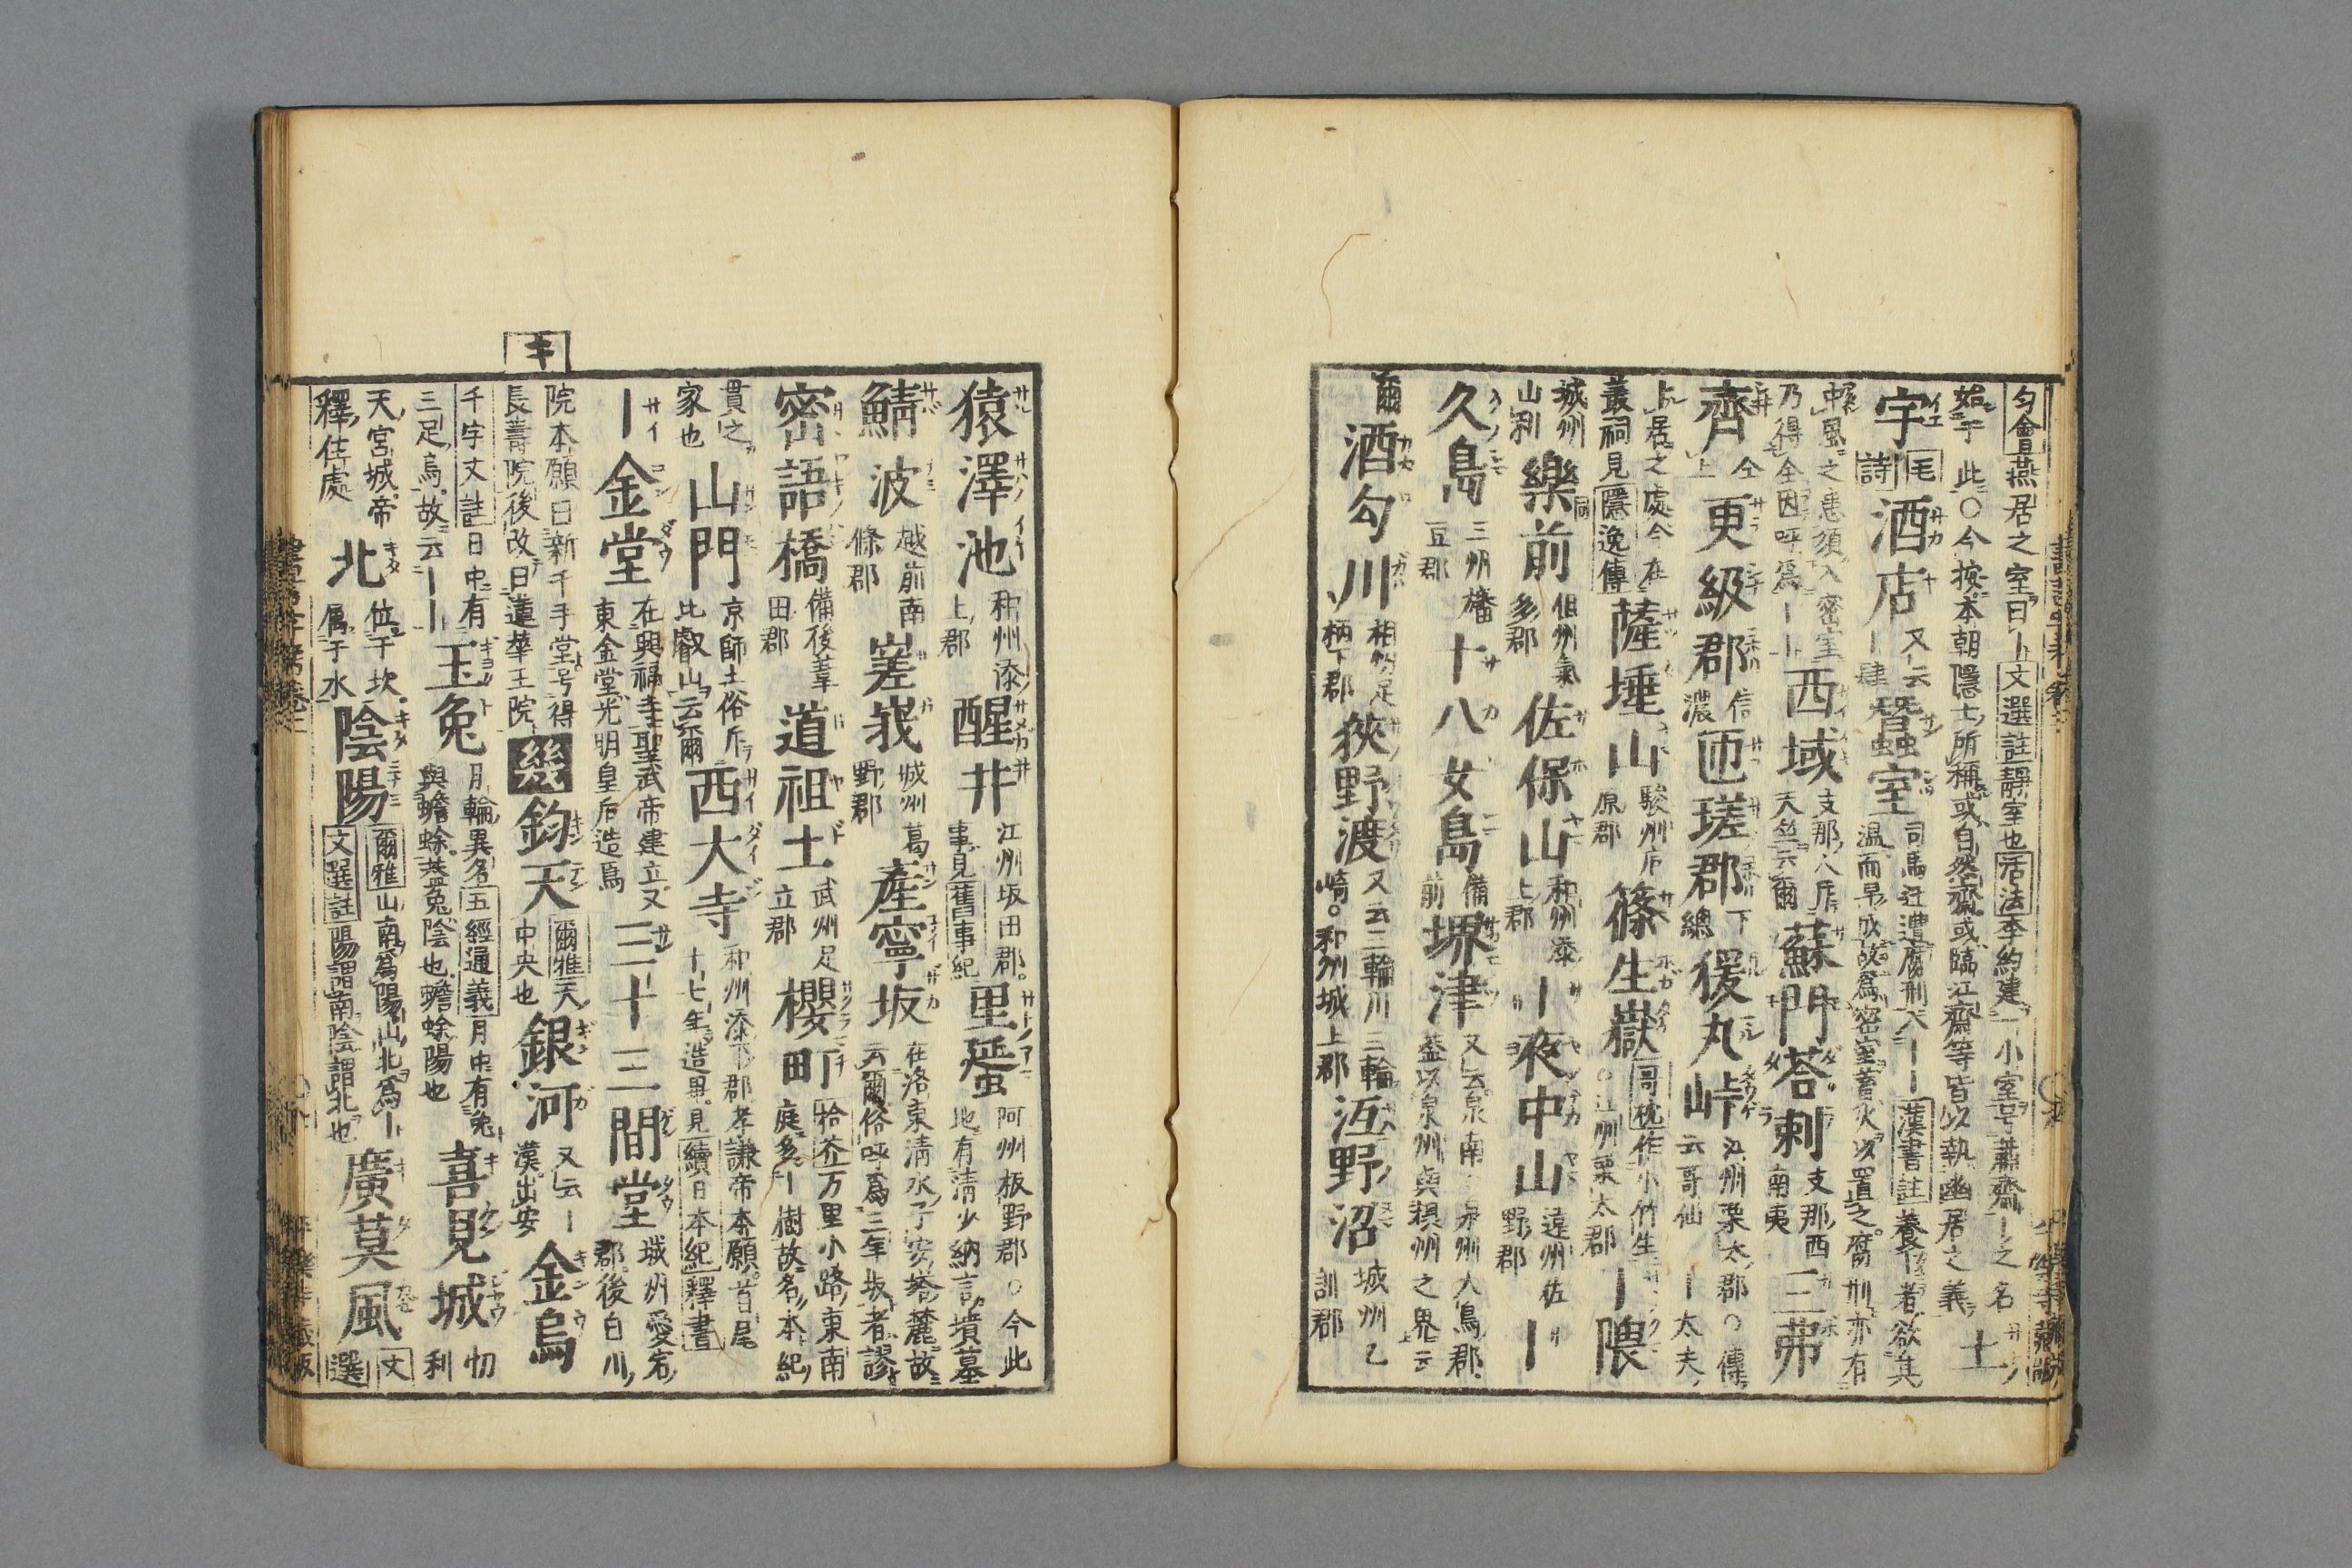 匀會燕居之室曰｜文選註靜室也活法李約建一小室号蕭齋｜之名
始于此○今按本朝隱士所稱或自然齋或臨江齋等皆以執幽居之義
宇 毛詩 酒店 又云｜肆 蠶室 司馬迁遭腐刑入｜｜漢書註養｜者欲其温而早成故爲密室蓄火以置之腐刑亦有
中風之患須入密室乃得全因呼爲｜｜ 西域 支那人斥天竺云爾 蘇門荅剌 支那西南夷 三弗
齊 仝上 更級郡 信濃 匝瑳郡 下總 猨丸峠 江州栗太郡○傳云哥仙｜太夫
上居之處今在叢祠見隱逸傳 薩埵山 駿州斥原郡 篠生嶽 哥枕作小竹生○江州栗太郡 ｜隈
城州山利 樂前 同 但州氣多郡 佐保山 和州添上郡 ｜夜中山 遠州佐野郡 ｜
久島 三州幡豆郡 十八女島 備前 堺津 又云泉南 泉州大鳥郡盖以泉州與摂州之界上云
爾 酒匂川 相州足柄下郡 狹野渡 又云三輪川三輪崎。和州城上郡 沍野沼 城州乙訓郡
猿澤池 和州添上郡 醒井 江州坂田郡。事見舊事紀 里蜑 阿州板野郡○今此地有淸少納言墳墓
鯖波 越前南條郡 嵳峩 城州葛野郡 産寧坂 在洛東淸水子安塔麓故云爾俗呼爲三年坂者謬
密語橋 備後葦田郡 道祖土 武州足立郡 櫻町 拾芥万里小路東南庭多｜樹故名本紀
貫之家也 山門 京師土俗斥比叡山云爾 西大寺 和州添下郡孝謙帝本願。首尾十七年造畢。見續日本紀釋書
｜金堂 在興福寺聖武帝建立又東金堂光明皇后造焉 三十三間堂 城州愛宕郡。後白川
院本願曰新千手堂号得長壽院後改曰蓮華王院 幾 鈞天 爾雅天中央也 銀河 又云｜漢。出安 金烏
キ
千字文註日中有三足烏。故云｜｜ 玉兔 月輪異名五經通義月中有兔與蟾蜍。盖兔陰也。蟾蜍陽也 喜見城 忉利
天宮城。帝釋住處 北 位于坎。属于水 陰陽 爾雅山南爲陽山北爲｜文選註陽謂南陰謂北也 廣莫風 文選